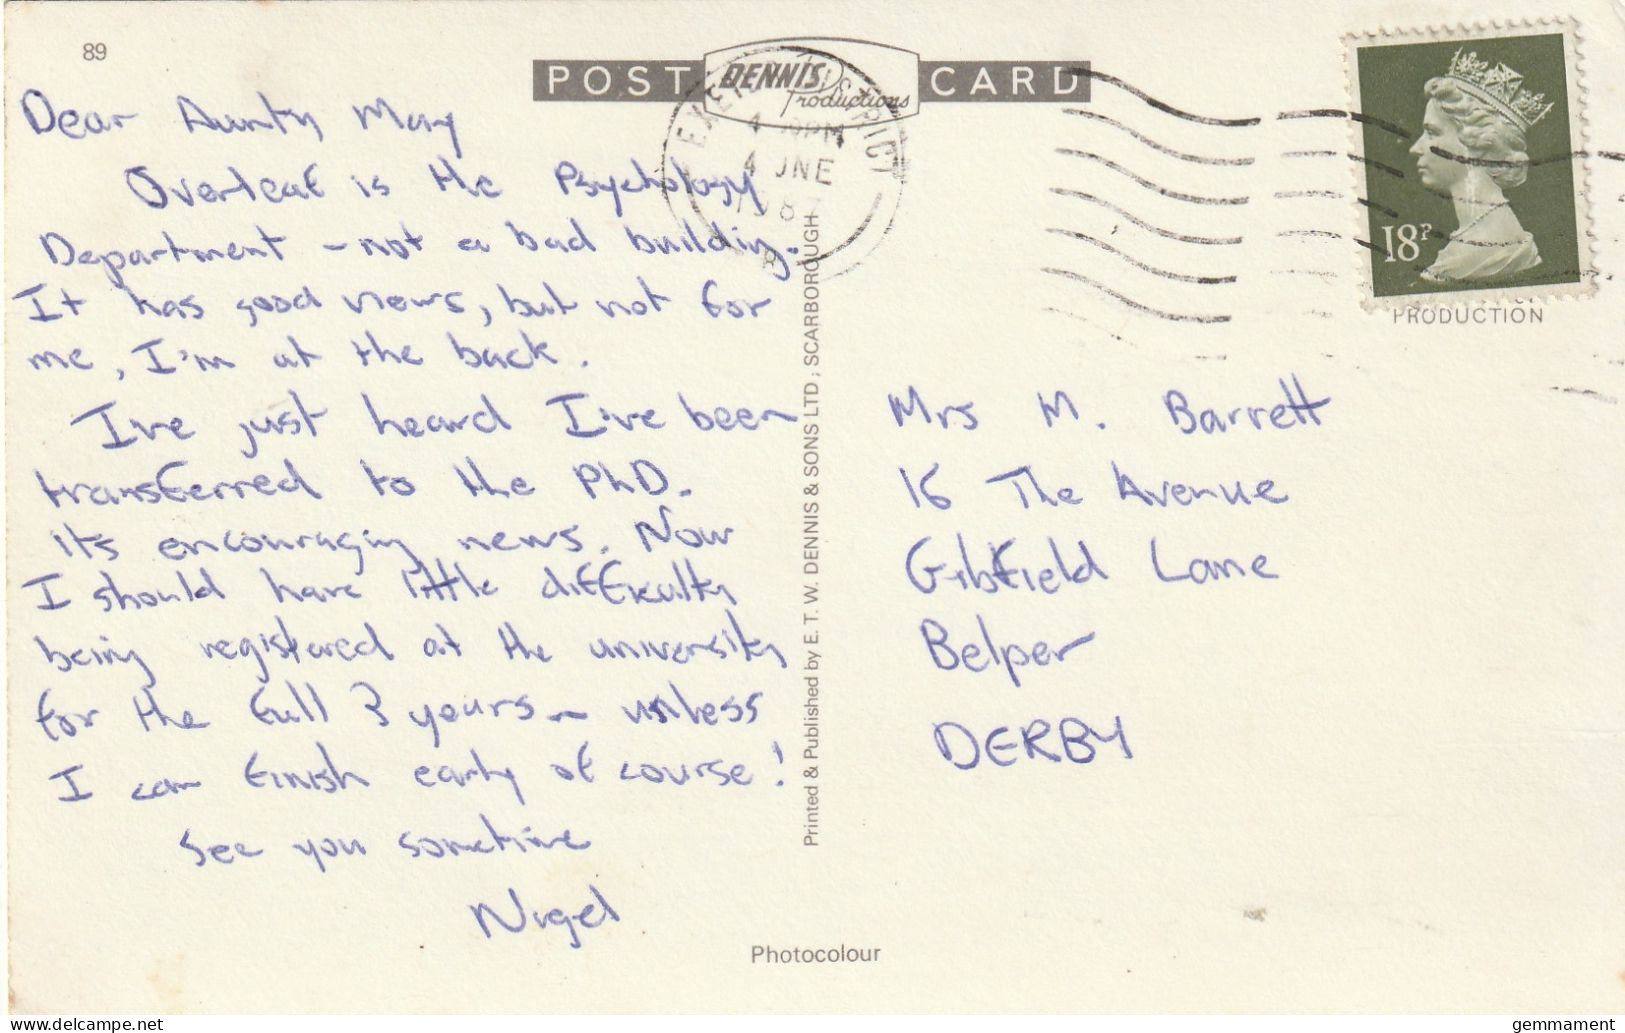 89
POST DENNIS Productions CARD
EXETER DISTRICT
4 JNE
18P
PRODUCTION
Dear Aunty May
Overleaf is the Psychology
Department - not a bad building.
It has good views, but not for
me, I'm at the back.
I've just heard I've been
transferred to the PhD.
its encouraging news. Now
I should have little difficulty
being registered at the university
for the full 3 years - unless
I can finish early of course!
See you sometime
Nigel
Printed & Published by E. T. W. DENNIS & SONS LTD; SCARBOROUGH
Mrs M. Barrett
16 The Avenue
Gibfield Lane
Belper
DERBY
Photocolour
gemmament
delcampe.net